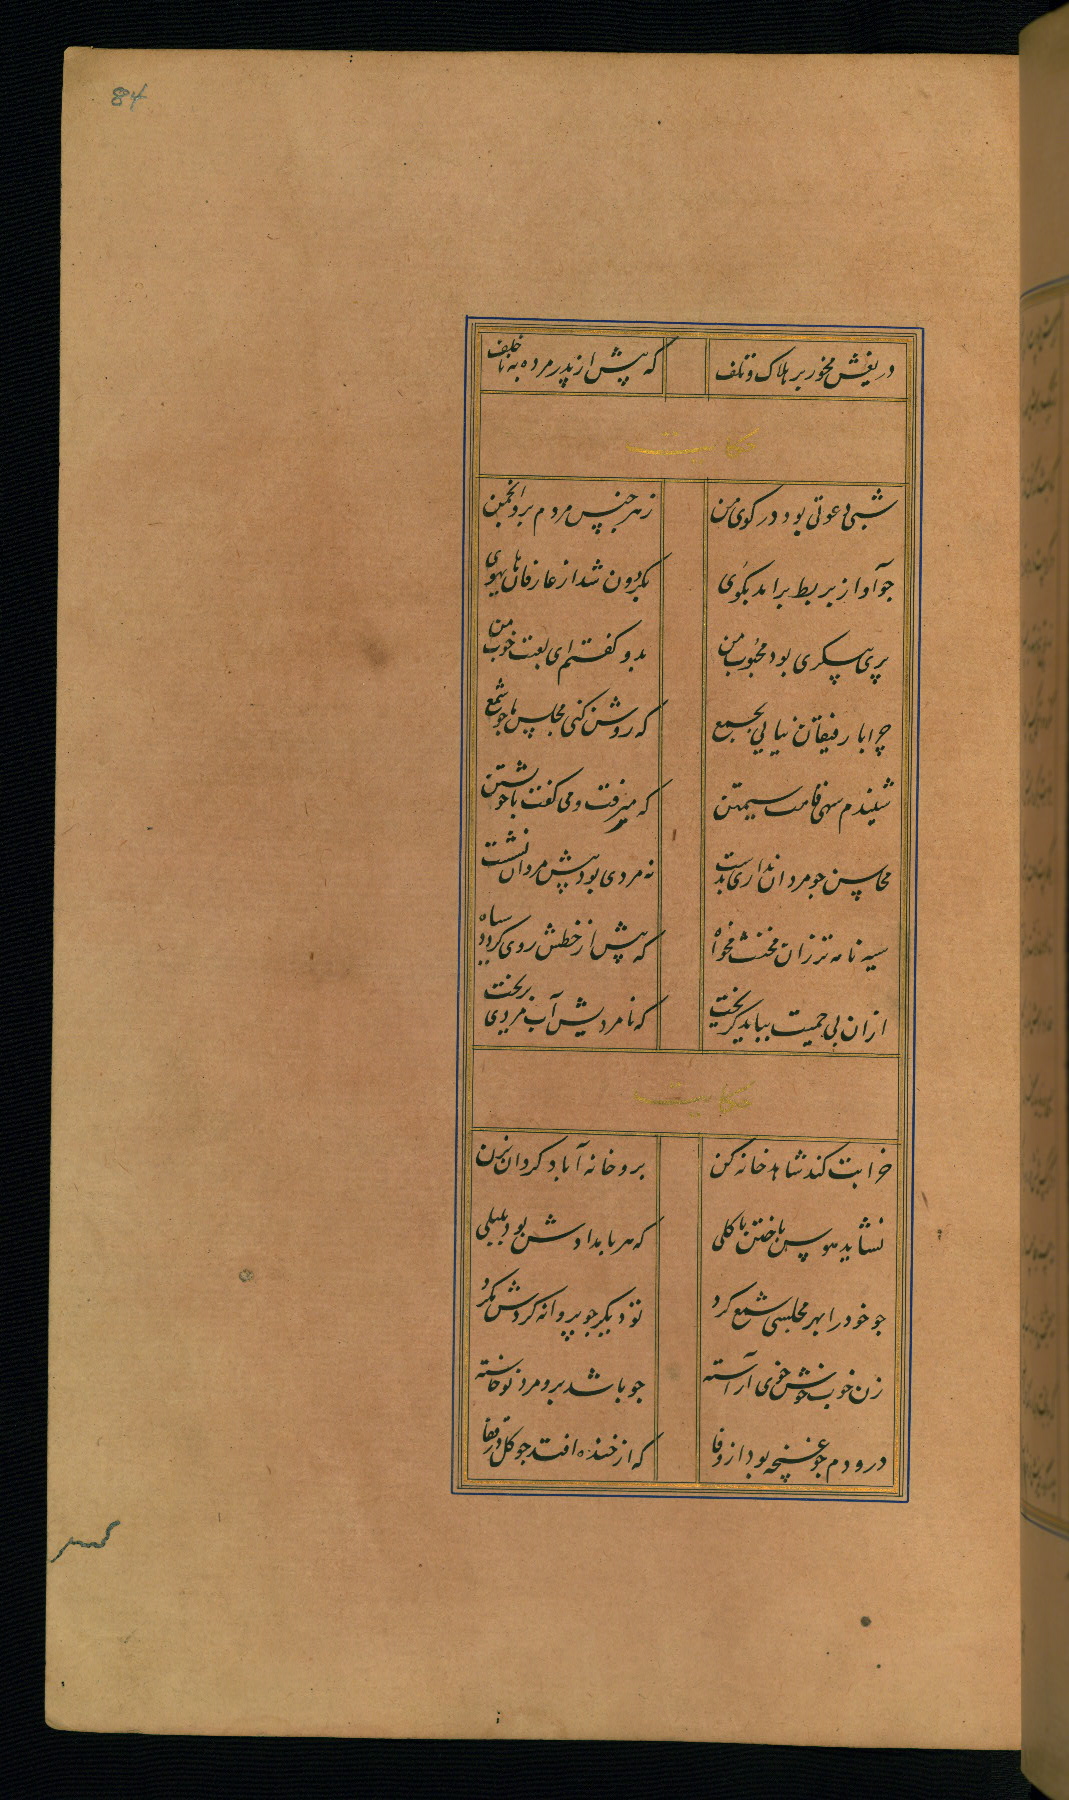 84
دریغش مخور بر هلاک و تلف که پیش از پدر مرده به ناخلف
حکایت
شبی دعوتی بود در کوی من ز هر جنس مردم برو انجمن
جو آواز بربط برامد بکوی بکردون شد از عارفان های هوی
پری پیکری بود محبوب من بدو کفتم ای لعبت خوب من
چرا با رفیقان نیایی بجمع که روشن کنی مجلس ما جو شمع
شنیدم سهی قامت سیمتن که میرفت و می کفت با خویشتن
محاسن جو مردان نداری بدست نه مردی بود پیش مردان نشست
سیه نامه تر زان مخنث مخواه که پیش از خطش روی کردد سیاه
ازان بی حمیت بباید کریخت که نامردیش آب مردی بریخت
حکایت
خرابت کند شاهد خانه کن برو خانه آباد کردان بزن
نشاید هوس باختن با کلی که هر بامدادش بود بلبلی
جو خود را بهر مجلسی شمع کرد تو دیکر جو پروانه کردش مکرد
زن خوب خوش خوی آراسته جو باشد برو مرد نوخاسته
درو دم جو غنچه بود از وفا که از خنده افتد جو کل در قفا